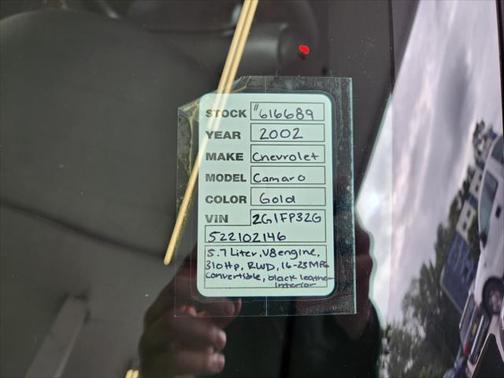 STOCK #616689
YEAR 2002
MAKE Chevrolet
MODEL Camaro
COLOR Gold
VIN 2G1FP32G
522102146
5.7 Liter, V8 engine,
310 Hp, RWD, 16-23 MPG
Convertible, black leather
interior